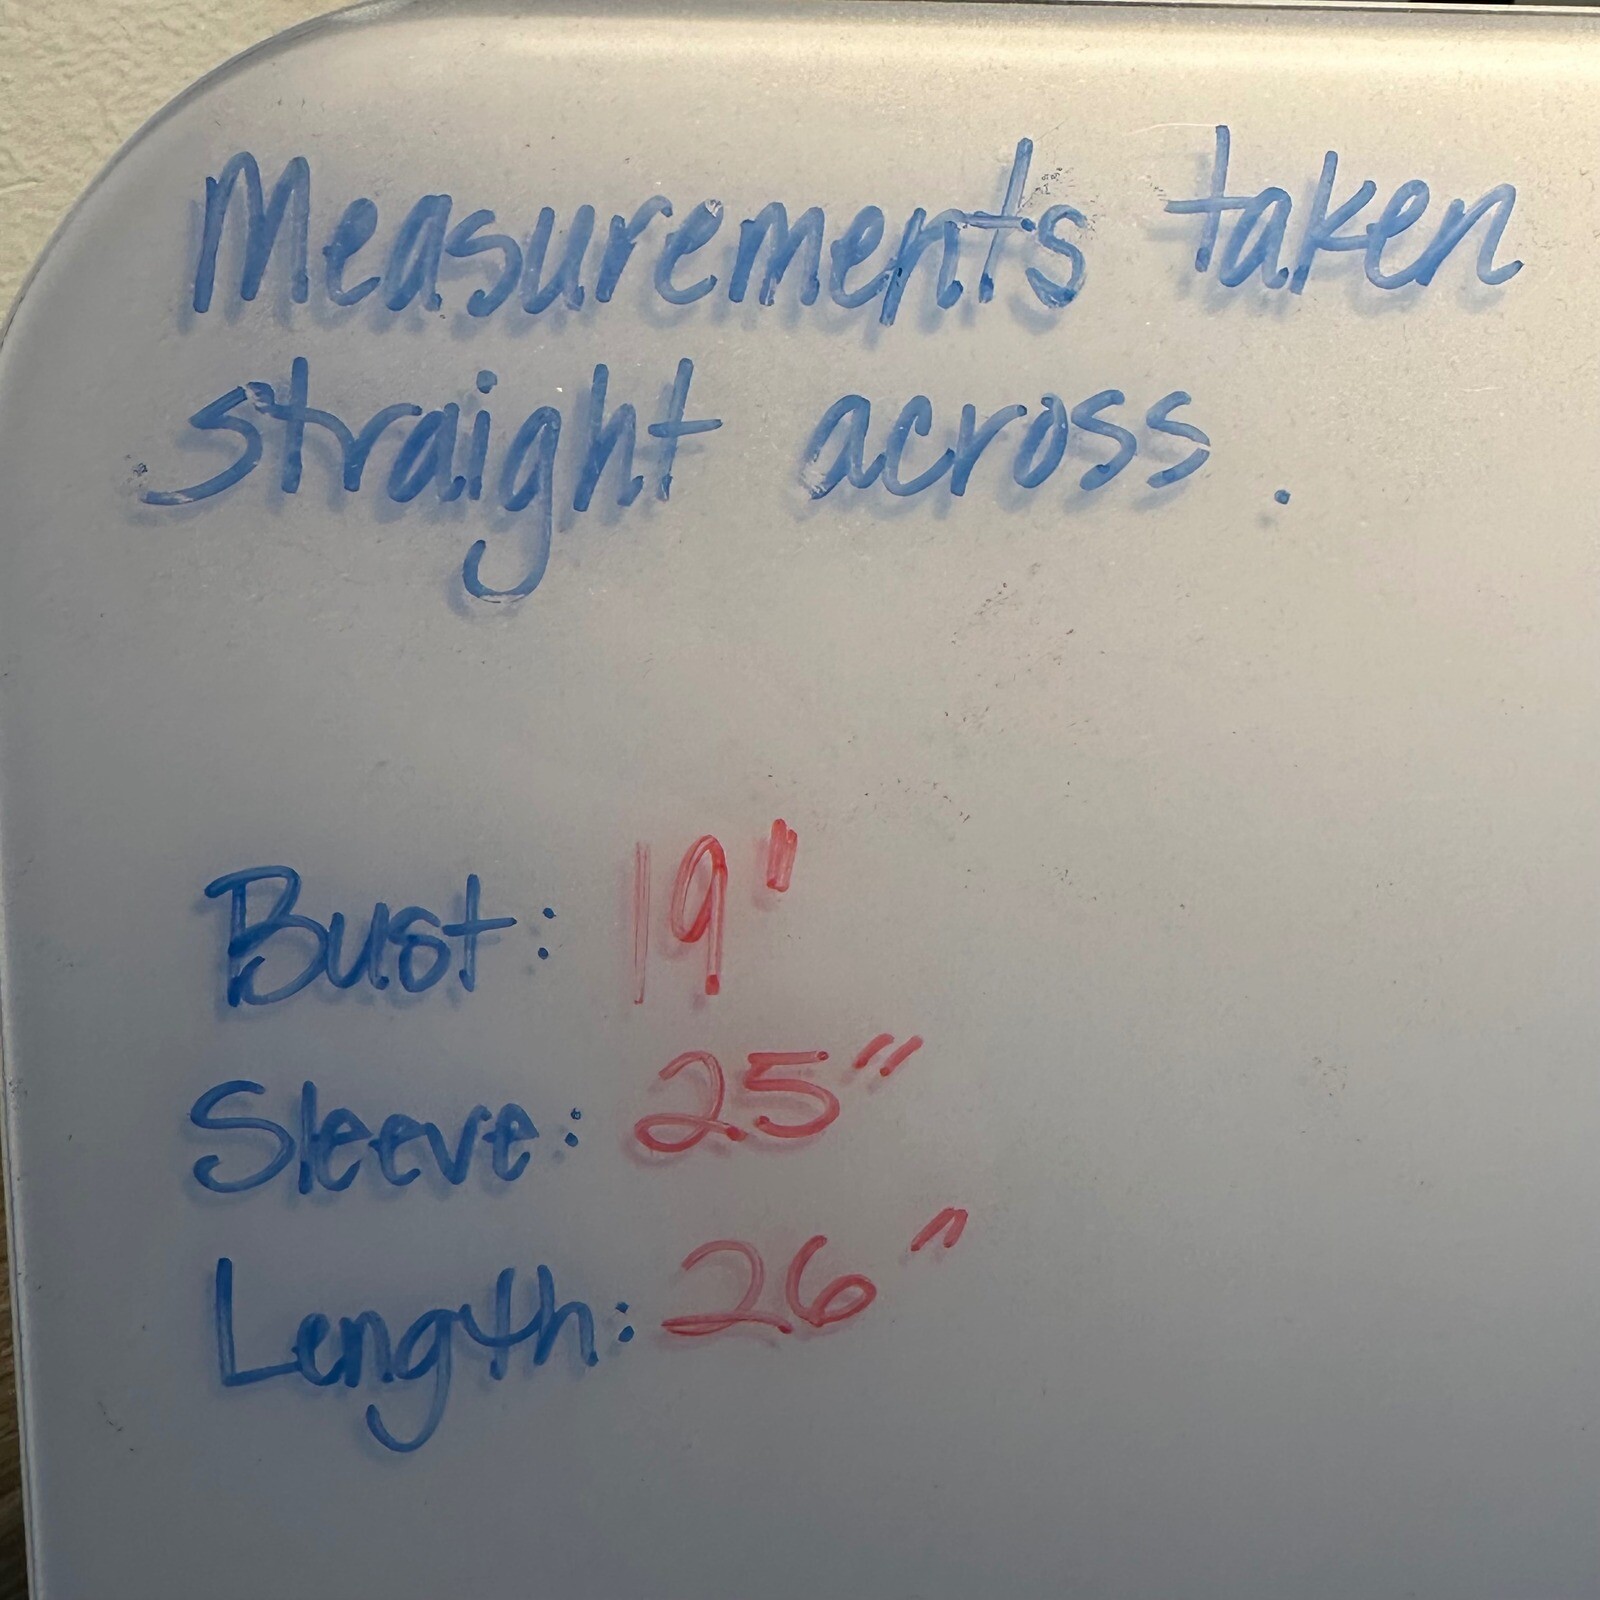 Measurements taken
straight across.
Bust: 19"
Sleeve: 25"
Length: 26"